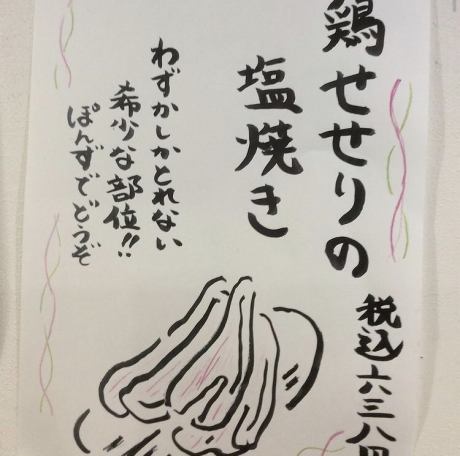 鶏せせりの
塩焼き
わずかしかとれない
希少な部位!!
ぽんずでどうぞ
税込六三八円